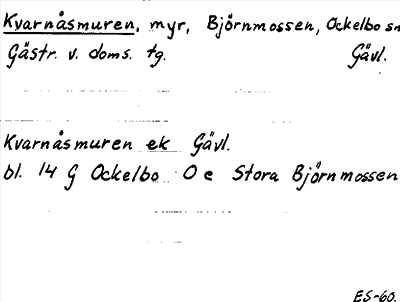 Kvarnåsmuren, myr, Björnmossen, Ockelbo sn
Gästr. v. doms. tg. Gävl.
Kvarnåsmuren ek Gävl.
bl. 14 G Ockelbo O e Stora Björnmossen
ES-60.